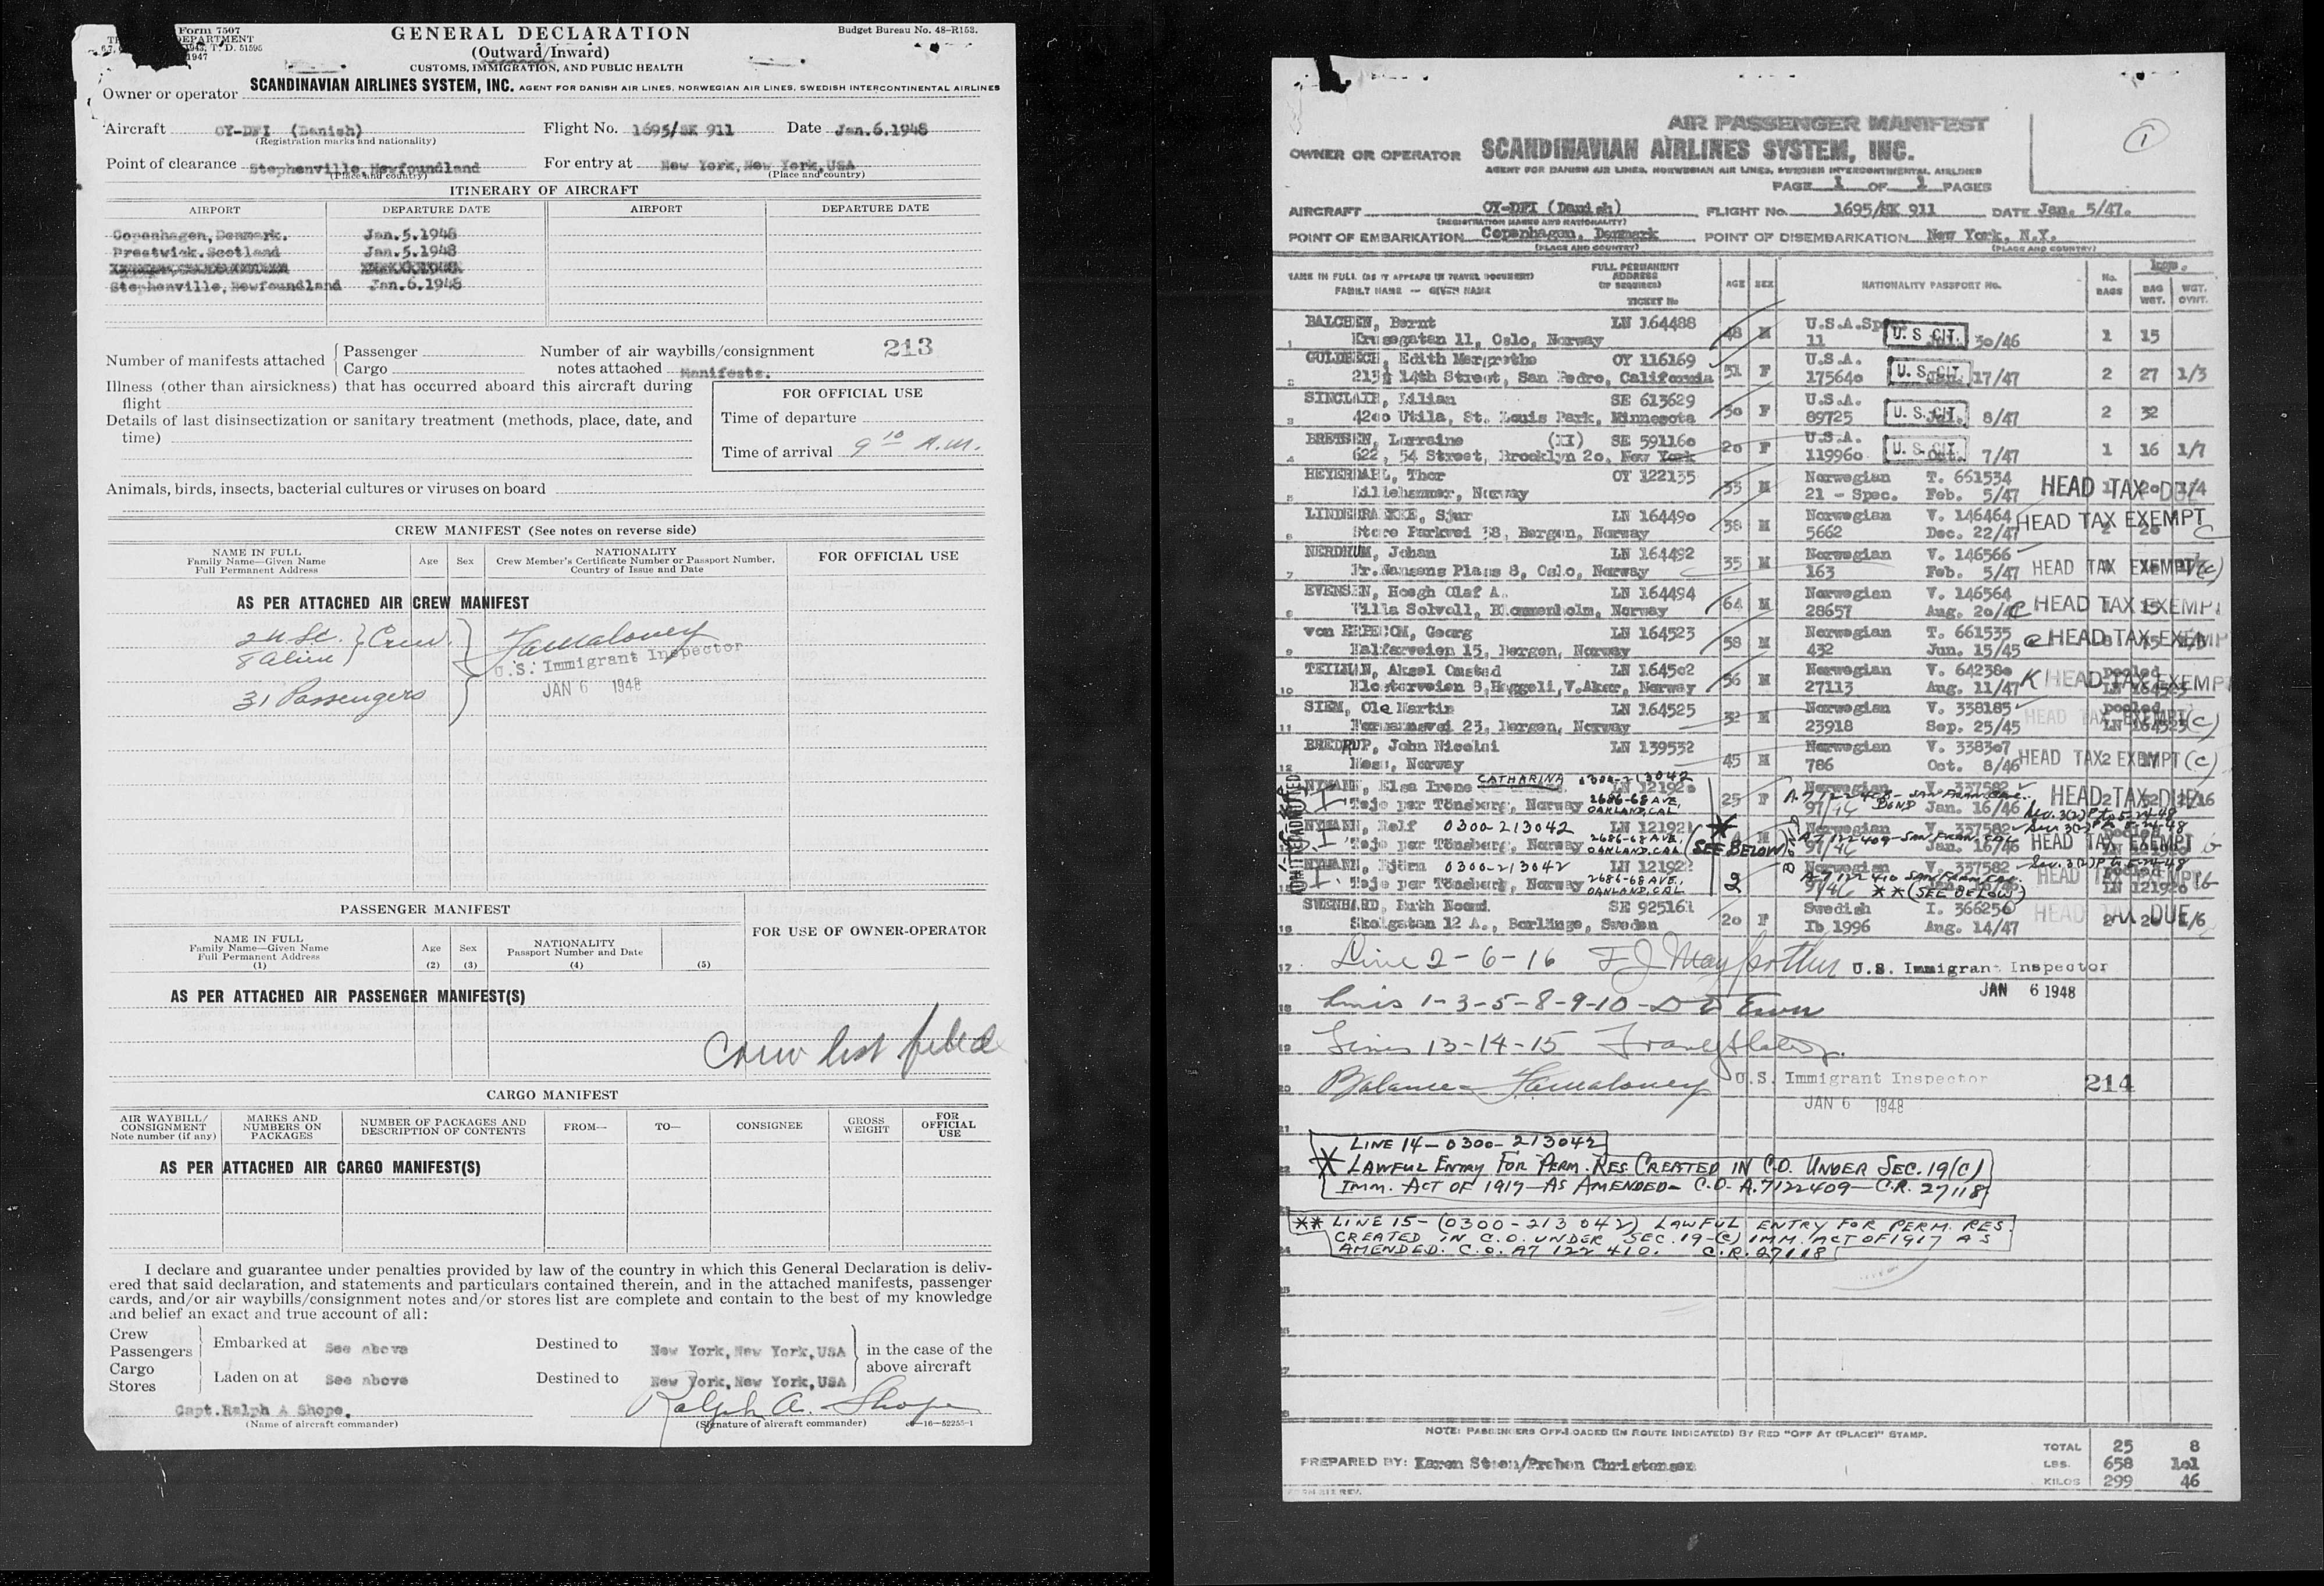 Form 7507
DEPARTMENT
T. D. 51595
1947
GENERAL DECLARATION
(Outward/Inward)
CUSTOMS, IMMIGRATION, AND PUBLIC HEALTH
Budget Bureau No. 48-R153.
Owner or operator SCANDINAVIAN AIRLINES SYSTEM, INC. AGENT FOR DANISH AIR LINES, NORWEGIAN AIR LINES, SWEDISH INTERCONTINENTAL AIRLINES
Aircraft OY-DFI (Danish) Flight No. 1695/SK 911 Date Jan.6.1948
(Registration marks and nationality)
Point of clearance Stephenville,Newfoundland For entry at New York,New York,USA
(Place and country) (Place and country)
ITINERARY OF AIRCRAFT
AIRPORT DEPARTURE DATE AIRPORT DEPARTURE DATE
Copenhagen,Denmark. Jan.5.1948
Prestwick.Scotland Jan.5.1948
Stephenville,Newfoundland Jan.6.1948
Number of manifests attached { Passenger
Cargo
Number of air waybills/consignment
notes attached Manifests.
213
Illness (other than airsickness) that has occurred aboard this aircraft during
flight
Details of last disinsectization or sanitary treatment (methods, place, date, and
time)
FOR OFFICIAL USE
Time of departure
Time of arrival 9 10 A.M.
Animals, birds, insects, bacterial cultures or viruses on board
CREW MANIFEST (See notes on reverse side)
NAME IN FULL
Family Name—Given Name
Full Permanent Address
Age Sex
NATIONALITY
Crew Member's Certificate Number or Passport Number,
Country of Issue and Date
FOR OFFICIAL USE
AS PER ATTACHED AIR CREW MANIFEST
8 alien } Crew
31 Passengers
U.S. Immigrant Inspector
JAN 6 1948
PASSENGER MANIFEST
NAME IN FULL
Family Name—Given Name
Full Permanent Address
(1)
Age
(2)
Sex
(3)
NATIONALITY
Passport Number and Date
(4)
(5)
FOR USE OF OWNER-OPERATOR
AS PER ATTACHED AIR PASSENGER MANIFEST(S)
Crew list filed
CARGO MANIFEST
AIR WAYBILL/
CONSIGNMENT
Note number (if any)
MARKS AND
NUMBERS ON
PACKAGES
NUMBER OF PACKAGES AND
DESCRIPTION OF CONTENTS
FROM—
TO—
CONSIGNEE
GROSS
WEIGHT
FOR
OFFICIAL
USE
AS PER ATTACHED AIR CARGO MANIFEST(S)
I declare and guarantee under penalties provided by law of the country in which this General Declaration is deliv-
ered that said declaration, and statements and particulars contained therein, and in the attached manifests, passenger
cards, and/or air waybills/consignment notes and/or stores list are complete and contain to the best of my knowledge
and belief an exact and true account of all:
Crew
Passengers
Embarked at See above Destined to New York,New York,USA
Cargo
Stores
Laden on at See above Destined to New York,New York,USA
in the case of the
above aircraft
Capt.Ralph A Shope.
(Name of aircraft commander)
Ralph A. Shope
(Signature of aircraft commander)
16—52255-1
AIR PASSENGER MANIFEST
1
OWNER OR OPERATOR SCANDINAVIAN AIRLINES SYSTEM, INC.
AGENT FOR DANISH AIR LINES, NORWEGIAN AIR LINES, SWEDISH INTERCONTINENTAL AIRLINES
PAGE 1 OF 2 PAGES
AIRCRAFT OY-DFI (Danish) FLIGHT No. 1695/SK 911 DATE Jan. 5/47.
(REGISTRATION MARKS AND NATIONALITY)
POINT OF EMBARKATION Copenhagen, Denmark POINT OF DISEMBARKATION New York, N.Y.
(PLACE AND COUNTRY) (PLACE AND COUNTRY)
NAME IN FULL (AS IT APPEARS IN TRAVEL DOCUMENT)
FAMILY NAME — GIVEN NAME
FULL PERMANENT
ADDRESS
(IF REQUIRED)
TICKET No
AGE SEX
NATIONALITY PASSPORT No.
No. BAGS
kgs.
BAG WGT.
WGT. OVNT.
BALCHEN, Bernt LN 164488 48 M U.S.A.Sp U.S. CIT. 1 15
1 Krusegatan 11, Oslo, Norway 11 30/46
GULDBECH, Edith Margrethe OY 116169 51 F U.S.A. U.S. CIT. 2 27 1/3
2 213½ 14th Street, San Pedro, California 17564o 17/47
SINCLAIR, Lilian SE 613629 30 F U.S.A. U.S. CIT. 2 32
3 42oo Utila, St. Louis Park, Minnesota 89725 Jul. 8/47
BRETSEN, Lorraine (XX) SE 59116o 20 F U.S.A. U.S. CIT. 1 16 1/7
4 622, 54 Street, Brooklyn 2o, New York 11996o Oct. 7/47
HEYERDAHL, Thor OY 122135 33 M Norwegian T. 661534 HEAD TAX DUE
5 Lillehammer, Norway 21 - Spec. Feb. 5/47 1 20 1/4
LINDEBRAEKKE, Sjur LN 16449o 38 M Norwegian V. 146464 HEAD TAX EXEMPT
6 Store Parkvei 38, Bergen, Norway 5662 Dec. 22/47 C
NERDRUM, Johan LN 164492 35 M Norwegian V. 146566
7 Fr.Nansens Plass 8, Oslo, Norway 163 Feb. 5/47 HEAD TAX EXEMPT (C)
EVENSEN, Hoegh Olaf A. LN 164494 64 M Norwegian V. 146564
8 Villa Solvoll, Blommenholm, Norway 28657 Aug. 2o/4 C HEAD TAX EXEMPT
von ERPECOM, Georg LN 164523 58 M Norwegian T. 661535
9 Kalfarveien 15, Bergen, Norway 432 Jun. 15/45 C HEAD TAX EXEMP
TEILMAN, Aksel Omstad LN 1645o2 56 M Norwegian V. 64238o pooled
10 Klosterveien 8,Heggeli,V.Aker, Norway 27113 Aug. 11/47 K HEAD TAX EXEMP
STEM, Ole Martin LN 164525 32 M Norwegian V. 338185 pooled
11 Formannsvei 23, Bergen, Norway 23918 Sep. 25/45 HEAD TAX EXEMPT LN 164523 (C)
BREDRUP, John Nicolai LN 139532 45 M Norwegian V. 3383o7
12 Moss, Norway 786 Oct. 8/46 HEAD TAX EXEMPT (C)
ADMITTED
NYMANN, Elsa Irene CATHARINA 0300-213042 LN 12192o 25 F Norwegian V. 337582 HEAD TAX DUE
Teje per Tönsberg, Norway 2686-68 AVE, OAKLAND, CAL 97/46 Jan. 16/46 BOND
NYMANN, Rolf 0300-213042 LN 121921 M Norwegian V. 337582
Teje per Tönsberg, Norway 2686-68 AVE, OAKLAND, CAL * (SEE BELOW) A7122409 - SAN FRAN. CAL 97/46 Jan. 16/46 HEAD TAX EXEMPT
NYMANN, Björn 0300-213042 LN 121922 2 Norwegian V. 337582 pooled
Teje per Tönsberg, Norway 2686-68 AVE, OAKLAND, CAL A7122410 SAN FRAN. CAL. 97/46 ** (SEE BELOW) HEAD TAX EXEMPT LN 12192o
SWENHARD, Ruth Noemi SE 925161 20 F Swedish I. 366256 HEAD TAX DUE
16 Skolgatan 12 A., Borlänge, Sweden Ib 1996 Aug. 14/47 2 20 2/6
17 Line 2-6-16 U.S. Immigrant Inspector
JAN 6 1948
18 Lines 1-3-5-8-9-10-
19 Lines 13-14-15
20 Balance U.S. Immigrant Inspector 214
JAN 6 1948
LINE 14-0300-213042
* LAWFUL ENTRY FOR PERM. RES CREATED IN C.O. UNDER SEC. 19(C)
IMM. ACT OF 1917-AS AMENDED- C.O. A.7122409-C.R. 27118
** LINE 15-(0300-213042) LAWFUL ENTRY FOR PERM. RES.
CREATED IN C.O. UNDER SEC. 19-(C) IMM. ACT OF 1917 AS
AMENDED. C.O. A7122410. C.R. 27118
NOTE: PASSENGERS OFF-LOADED EN ROUTE INDICATE(D) BY RED "OFF AT (PLACE)" STAMP.
TOTAL 25 8
PREPARED BY: Karen Steen/Preben Christensen LBS. 658 1o1
KILOS 299 46